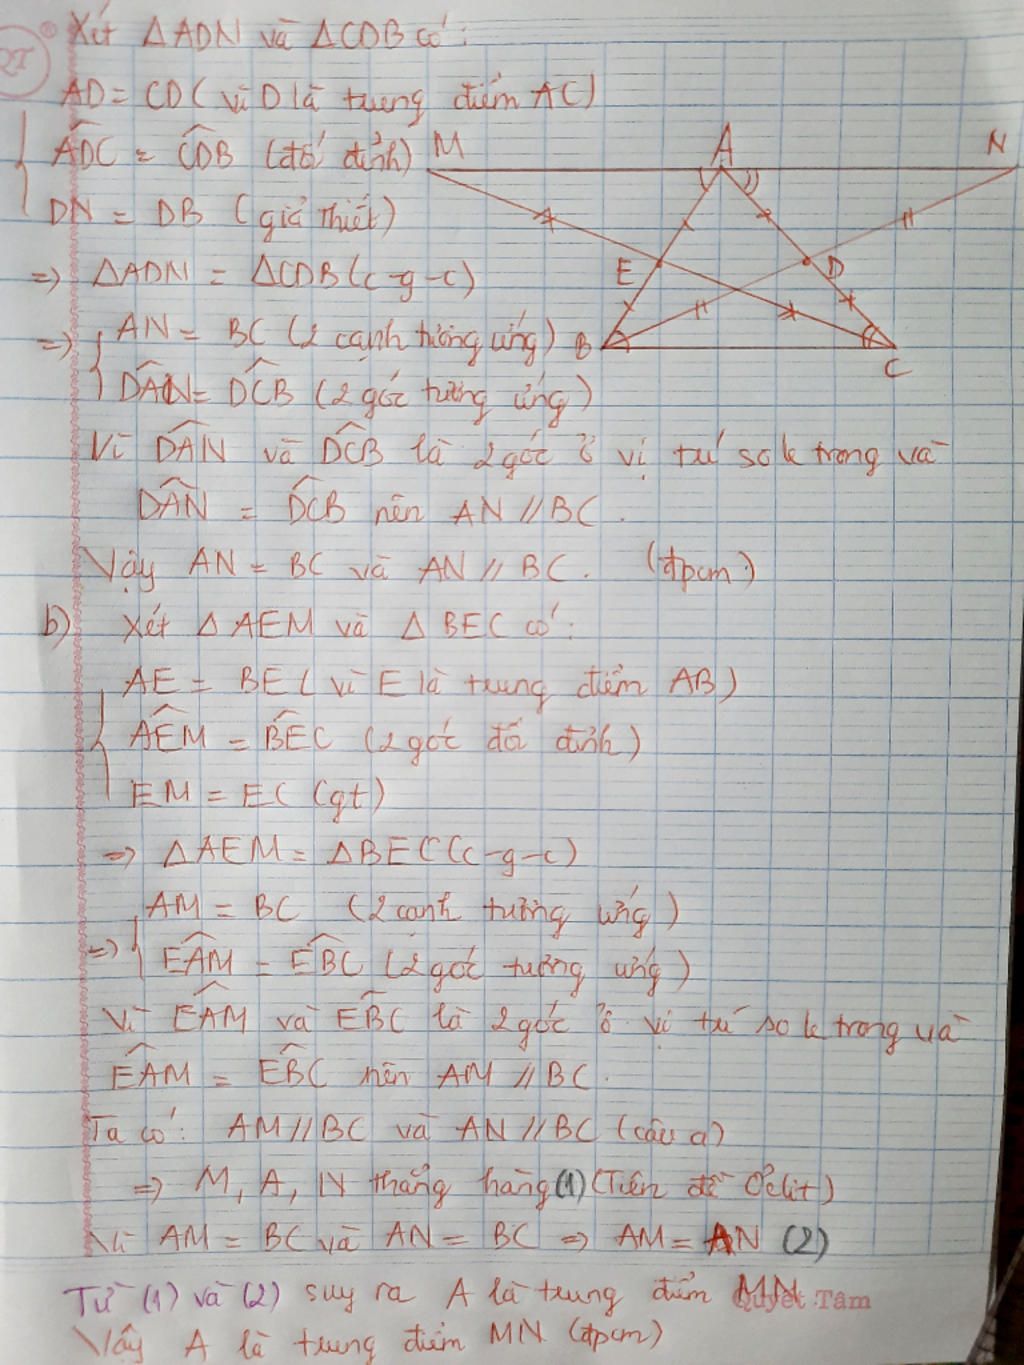 Xét ΔADN và ΔCDB có:
AD = CD (vì D là trung điểm AC)
ADC = CDB (đối đỉnh)
DN = DB (giả thiết)
=> ΔADN = ΔCDB (c-g-c)
=> AN = BC (2 cạnh tương ứng)
DAN = DCB (2 góc tương ứng)
Vì DAN và DCB là 2 góc ở vị trí so le trong và
DAN = DCB nên AN // BC.
Vậy AN = BC và AN // BC. (đpcm)
M A N
E D
B C
b) Xét ΔAEM và ΔBEC có:
AE = BE (vì E là trung điểm AB)
AEM = BEC (2 góc đối đỉnh)
EM = EC (gt)
=> ΔAEM = ΔBEC (c-g-c)
AM = BC (2 cạnh tương ứng)
=> EAM = EBC (2 góc tương ứng)
Vì EAM và EBC là 2 góc ở vị trí so le trong và
EAM = EBC nên AM // BC.
Ta có: AM // BC và AN // BC (câu a)
=> M, A, N thẳng hàng (1) (Tiên đề Ơclit)
Vì AM = BC và AN = BC => AM = AN (2)
Từ (1) và (2) suy ra A là trung điểm MN
Quyết Tâm
Vậy A là trung điểm MN (đpcm)